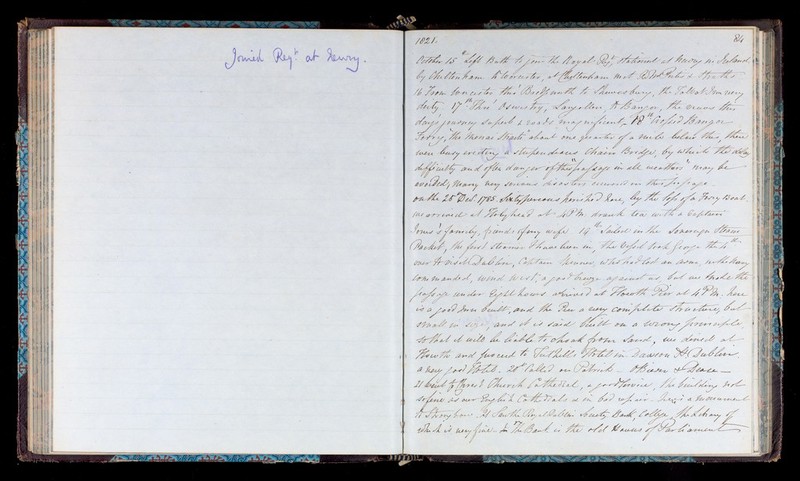 Joined Regt at Newry.
1821. 84
October 15th left Bath to join the Royal Regt stationed at Newry in Ireland
by Cheltenham to Worcester, at Cheltenham met
16 from Worcester thro' to Shrewsbury, the Talbot Inn very
dirty 17th Thro' Oswestry, Langollen, to Bangor, the
days journey superb & roads magnificent. 18th crossed Bangor
Ferry, the Menai Strait about one quarter of a mile below this, they
were busy erecting a stupendous chain Bridge, by which the delay
difficulty and often danger of this passage in all weathers may be
avoided, many very serious disasters occurred in this passage.
on the 25 Decr 1785 Sixty persons perished here, by the loss of a Ferry Boat.
we arrived at Holyhead at 4 P.M. drank tea with a Captain
Jones's family, friends of my wife 19th Sailed in the Steam
Packet, the first steamer I have been in, the Vessel took George the 4th
over to visit Dublin, Captain who had lost an arm,
commanded, wind west, a good breeze against us but we made the
passage under Eight hours arrived at Howth Pier at 4 P.M. here
is a good Inn built, and the Pier a very complete structure, but
small in size, and it is said built on a wrong principle
so that it will be liable to choak from Sand, we dined at
Howth and proceed to Tuthills Hotel in Dawson St Dublin
a very good Hotel. 20th Called on Patrick
21 went to Christ Church Cathedral, a good Service, the building not
so fine as our English Cathedrals & in bad repair. here is a monument
to Strongbow. 22 Saw the Royal Dublin Society Bank, College, the Library of
which is very fine. The Bank is the old Houses of Parliament